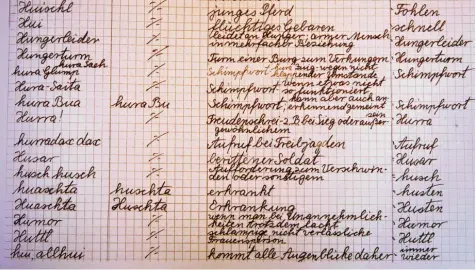 Huischl % junges Pferd Fohlen
Hui % flüchtiges Gebaren schnell
Hungerleider % leidet an Hunger, armer Mensch in mehrfacher Beziehung Hungerleider
Hungerturm % Turm einer Burg zum Verhungern Hungerturm
hura Sach
hura Glump % Schimpfwort wegen nicht klappender Umstände Schimpfwort
Hura-Saita % Schimpfwort wenn etwas nicht so funktioniert
hura Bua hura Bu Schimpfwort, kann aber auch anerkennend gemeint sein Schimpfwort
Hurra! % Freudenschrei z.B bei Sieg oder außergewöhnlichem Hurra
hurradax dax % Aufruf bei Treibjagden Aufruf
Husar % berittener Soldat Husar
husch husch % Aufforderung zum Verschwinden oder sonstigem husch
huaschta huschta erkrankt husten
Huaschta Huschta Erkrankung Husten
Humor % wenn man bei Unannehmlichkeiten trotzdem lacht Humor
Huttl % schlampige nicht verlässliche Frauensperson Huttl
hui, allhui % kommt alle Augenblicke daher immer wieder